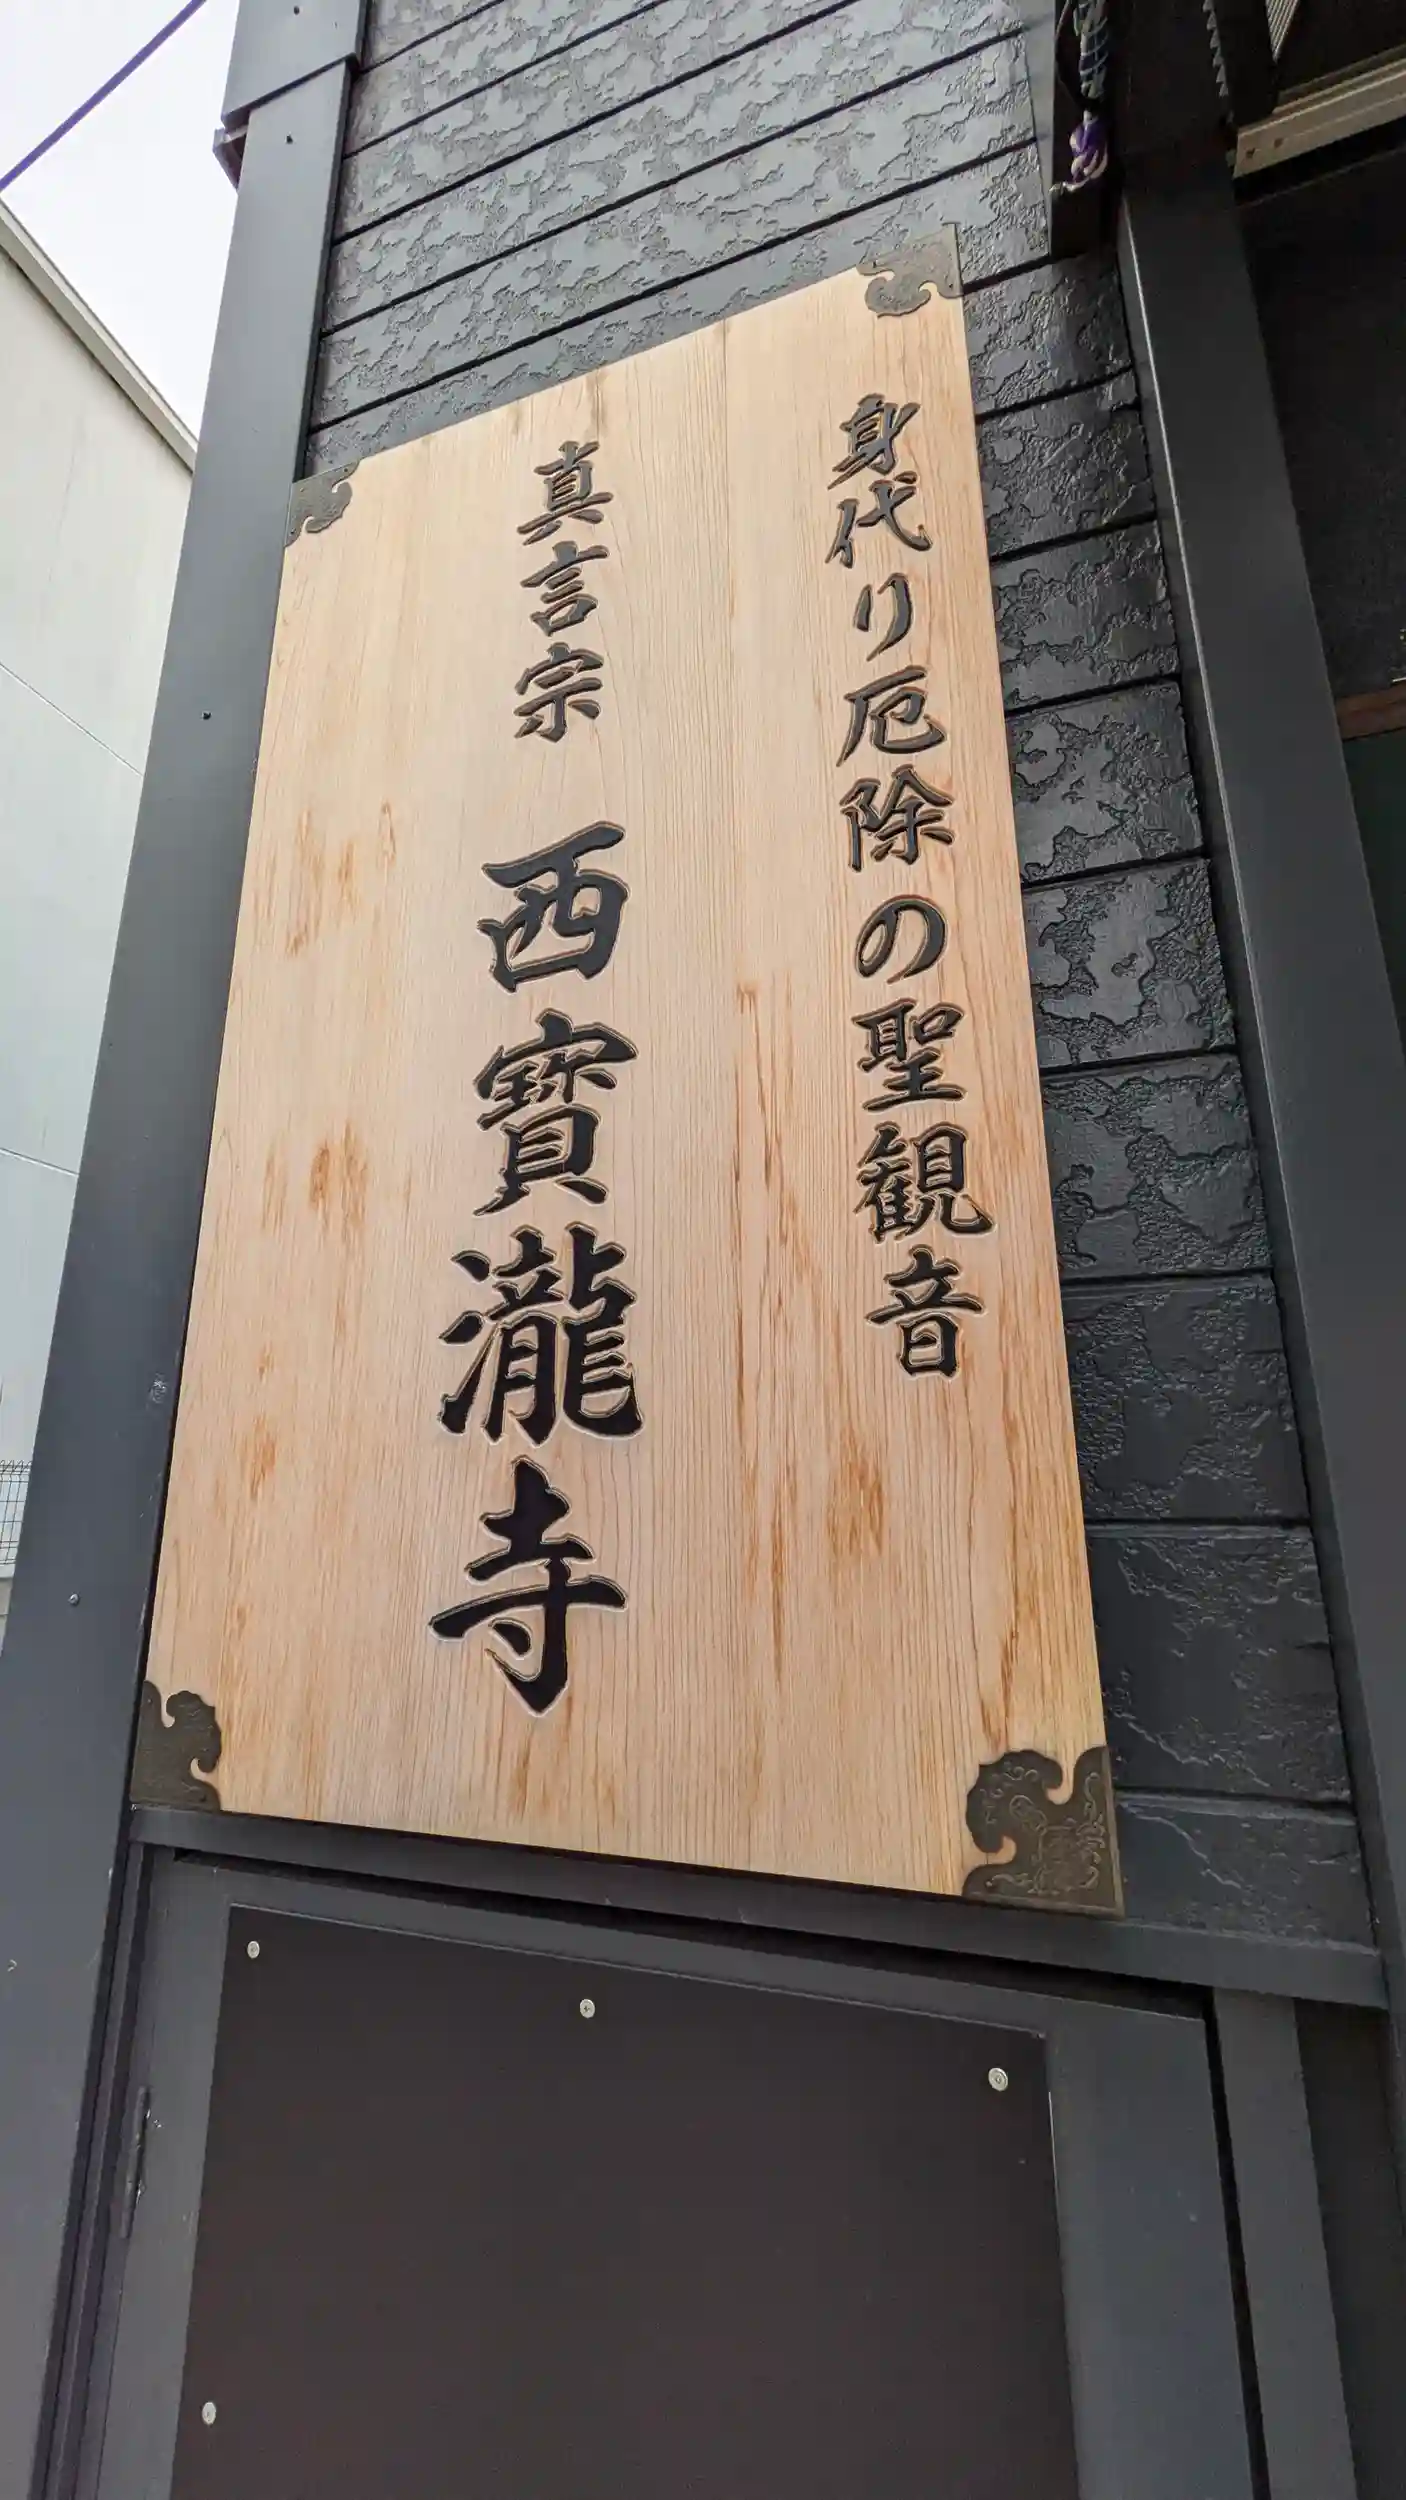 身代り厄除の聖観音
真言宗 西寳瀧寺